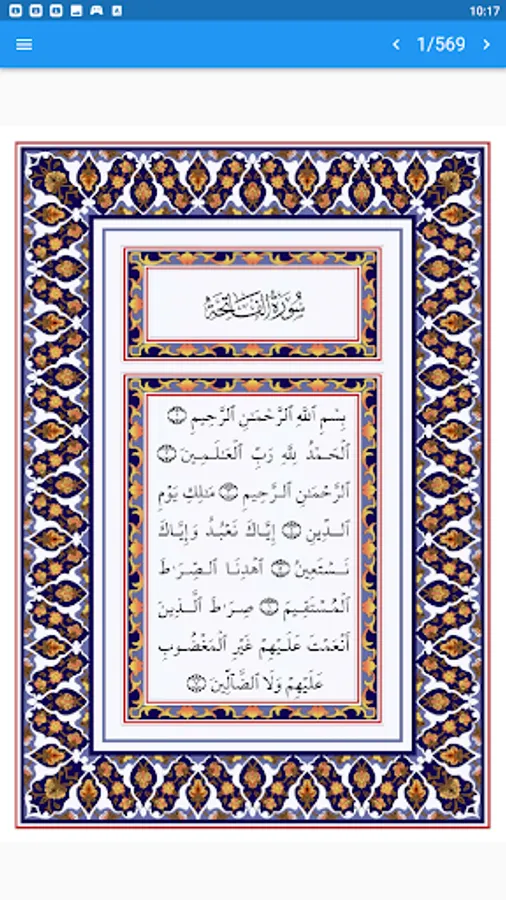 10:17
1/569
سُورَةُ الفَاتِحَةِ
بِسْمِ ٱللَّهِ ٱلرَّحْمَـٰنِ ٱلرَّحِيمِ ۝١
ٱلْحَمْدُ لِلَّهِ رَبِّ ٱلْعَـٰلَمِينَ ۝٢
ٱلرَّحْمَـٰنِ ٱلرَّحِيمِ ۝٣ مَـٰلِكِ يَوْمِ
ٱلدِّينِ ۝٤ إِيَّاكَ نَعْبُدُ وَإِيَّاكَ
نَسْتَعِينُ ۝٥ ٱهْدِنَا ٱلصِّرَٰطَ
ٱلْمُسْتَقِيمَ ۝٦ صِرَٰطَ ٱلَّذِينَ
أَنْعَمْتَ عَلَيْهِمْ غَيْرِ ٱلْمَغْضُوبِ
عَلَيْهِمْ وَلَا ٱلضَّآلِّينَ ۝٧